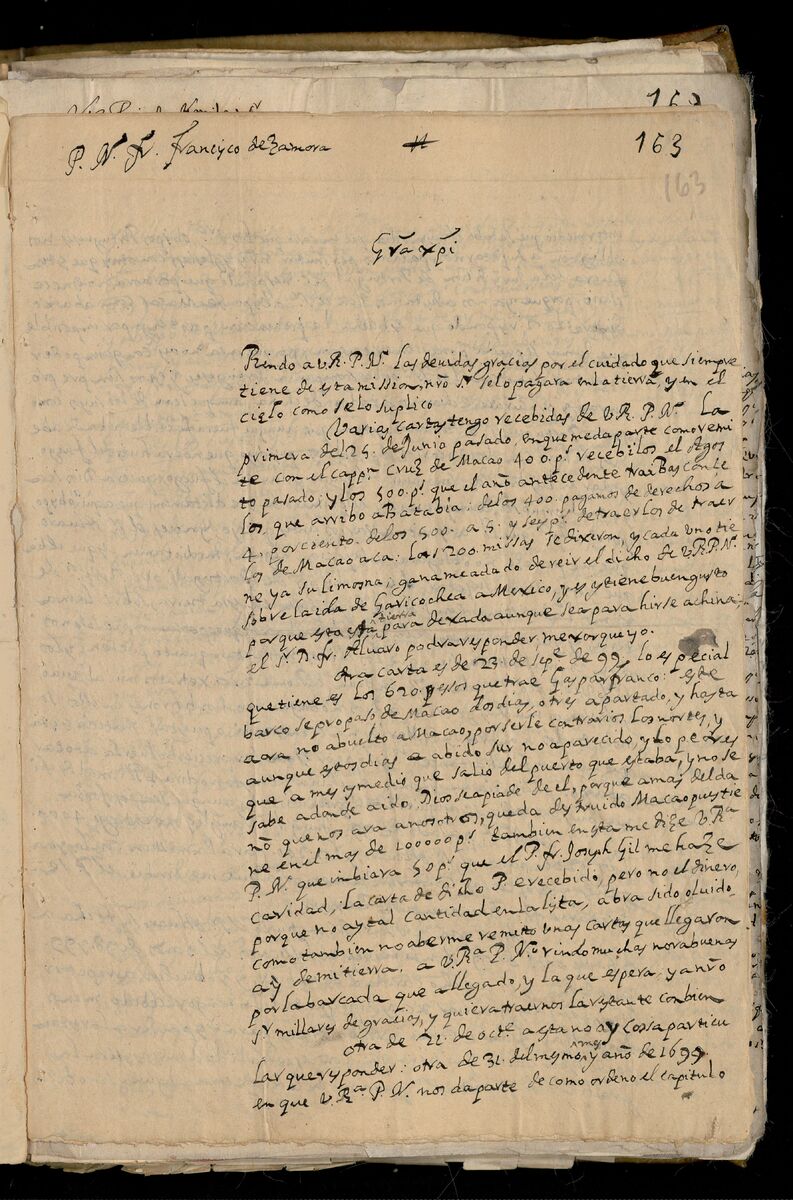 169
P. N. Fr. Francisco de Zamora
163
163
Gr̃a xp̃i
Rindo a V.R.P.N. las devidas gracias por el cuidado que siempre
tiene de esta mission, nr̃o Sr. se lo pagara en la tierra, y en el
cielo como se lo suplico.
Varias cartas tengo recebidas de V.R.P.N. La
primera del 25. de Junio pasado, en que me da parte como remi
te con el cappn. Cruz de Macao 400 ps. recebilos el Agos
to pasado, y los 500 ps. que el año antecedente trai Basconce
los, que arribo a Batabia: de los 400. pagamos de derechos a
4. por ciento. de los 500. a 5. y seys ps. de traerlos de traer
los de Macao aca: las 200. missas se dixeron, y cada uno tie
ne ya su limosna; gana me a dado de reir el dicho de V.R.P.N.
sobre la ida de Garicochea a Mexico, y es y tiene buen gusto
porque esta tierra es para dexada aunque sea para hirse a china;
el Sr. D. fr. Alvaro podra responder mexor que yo.
Otra carta es de 23. de Sepe. de 99. lo especial
que tiene es los 620. pesos que trae Gaspar franco: este
barco se propaso de Macao dos dias, o tres apartado, y hasta
aora no a buelto a Macao, por serle contrarios los nortes, y
aunque estos dias a abido sur no a parecido, y lo peor es
que a mes y medio que salio del puerto que estaba, y no se
sabe a donde a ido, Dios se apiade de el, porque a mas del da
ño que nos ara a nosotros, queda destruido Macao pues tie
ne en el mas de 100000 ps. tambien en esta me dize V.Ra.
P.N. que inbiara 50 ps. que el P. fr. Joseph Gil me haze
caridad, la carta de dicho P. e recebido, pero no el dinero,
porque no ay tal cantidad en la lista, abra sido oluido,
como tambien no aberme remitto unas cartas que llegaron
ay de mi tierra. a V.Ra. P.N. rindo muchas norabuenas
por la barcada que a llegado, y la que espera, y a nr̃o
Sr. millares de gracias, y quiera traernos la restante con bien
Otra de 22. de octe. a esta no ay cossa particu
lar que responder: otra de 31. del mesmo mes y año de 1699.
en que V.Ra. P.N. nos da parte de como ordeno el capitulo